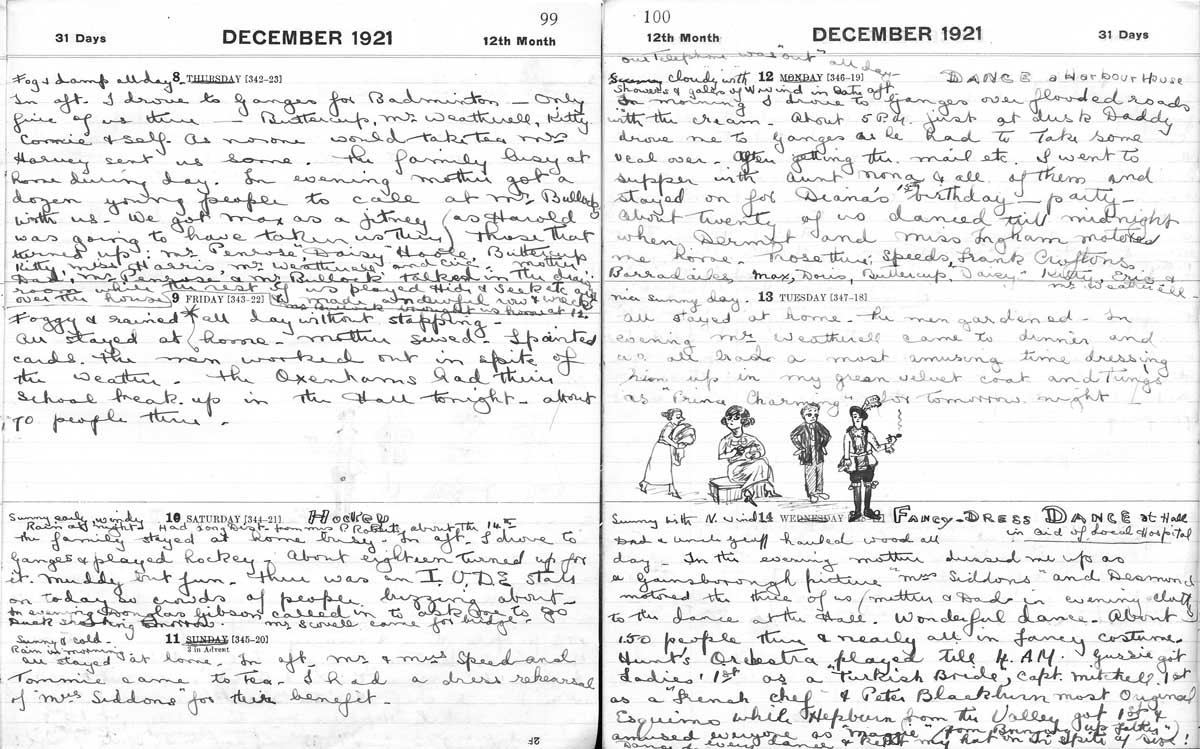 99
31 Days DECEMBER 1921 12th Month
Fog & damp all day 8 THURSDAY [342-23]
In aft. I drove to Ganges for Badminton – Only
five of us there – Buttercup, Mr Weatherell, Kitty
Cormie & self. As no one would take tea Mrs
Harvey sent us some. The family busy at
home during day. In evening mother got a
dozen young people to call at Mrs Bullocks
with us – We got Max as a jitney (as Harold
was going to have taken us there) Those that
turned up: Mr Penrose, Daisy, Hoole, Buttercup
Kitty, Miss Harris, Mr Weatherell and Mother
Dad, Mr Penrose & Mr Bullock talked in the
while the rest of us played Hide & Seek etc all
over the house 9 FRIDAY [343-22] & made a row
Mr Bullock brought us home at 12.
Foggy & rained all day without stopping –
All stayed at home – mother sewed – I painted
cards. The men worked out in spite of
the weather – The Oxenhams had their
School break up in the Hall tonight – about
70 people there –
Sunny early, windy 10 SATURDAY [344-21] HOCKEY
Rain at night Had long Dist. from Mrs P. about the 14th
The family stayed at home busy – In aft. I drove to
Ganges & played hockey. About eighteen turned up for
it. Muddy but fun. There was an I.O.D.E. stall
on today so crowds of people buzzing about –
In evening Douglas Gibson called in to ask Joe to go
Duck shooting tomorrow. Mrs Scovell came for bridge –
Sunny & cold – 11 SUNDAY [345-20]
Rain in morning 3 in Advent
All stayed at home. In aft. Mr & Mrs Speed and
Tommie came to tea. I had a dress rehearsal
of "Mrs Siddons" for their benefit –
100
12th Month DECEMBER 1921 31 Days
our telephone was "out" all day –
cloudy with 12 MONDAY [346-19] DANCE @ Harbour House
showers & gales of W wind in aft
In morning I drove to Ganges over flooded roads
with the cream – About 5 P.M. just at dusk Daddy
drove me to Ganges as he had to take some
veal over – After getting the mail etc. I went to
supper with Aunt Nona & all of them and
stayed on for Diana's 1st birthday – party –
About twenty of us danced till midnight
when Dermot and Miss Ingham motored
me home. Those there: Speeds, Frank Croftons,
Barradailes, Max, Doris, Buttercup, Daisy – Kitty, Eric &
Mr Weatherell –
nice sunny day. 13 TUESDAY [347-18]
All stayed at home – the men gardened – In
evening Mr Weatherell came to dinner and
we all had a most amusing time dressing
him up in my green velvet coat and things
as "Prince Charming" for tomorrow night –
Sunny with N. Wind 14 WEDNESDAY FANCY-DRESS DANCE at Hall
in aid of Local Hospital
Dad & Uncle Geoff hauled wood all
day – In the evening mother dressed me up as
a Gainsborough picture "Mrs Siddons" and Desmond
motored the three of us (mother & Dad in evening cloths)
to the dance at the Hall. Wonderful dance. About
150 people there & nearly all in fancy costume.
Hunt's Orchestra played till 4. A.M. Gussie got
Ladies' 1st as a "Turkish Bride", Capt. Mitchell, 1st
as a "French Chef" & Peter Blackburn most Original
Esquimo while Hepburn from the Valley got 1st &
amused everyone as "Maggie" from "Bringing up father")
Danced every dance & kept my hat on in spite of size!